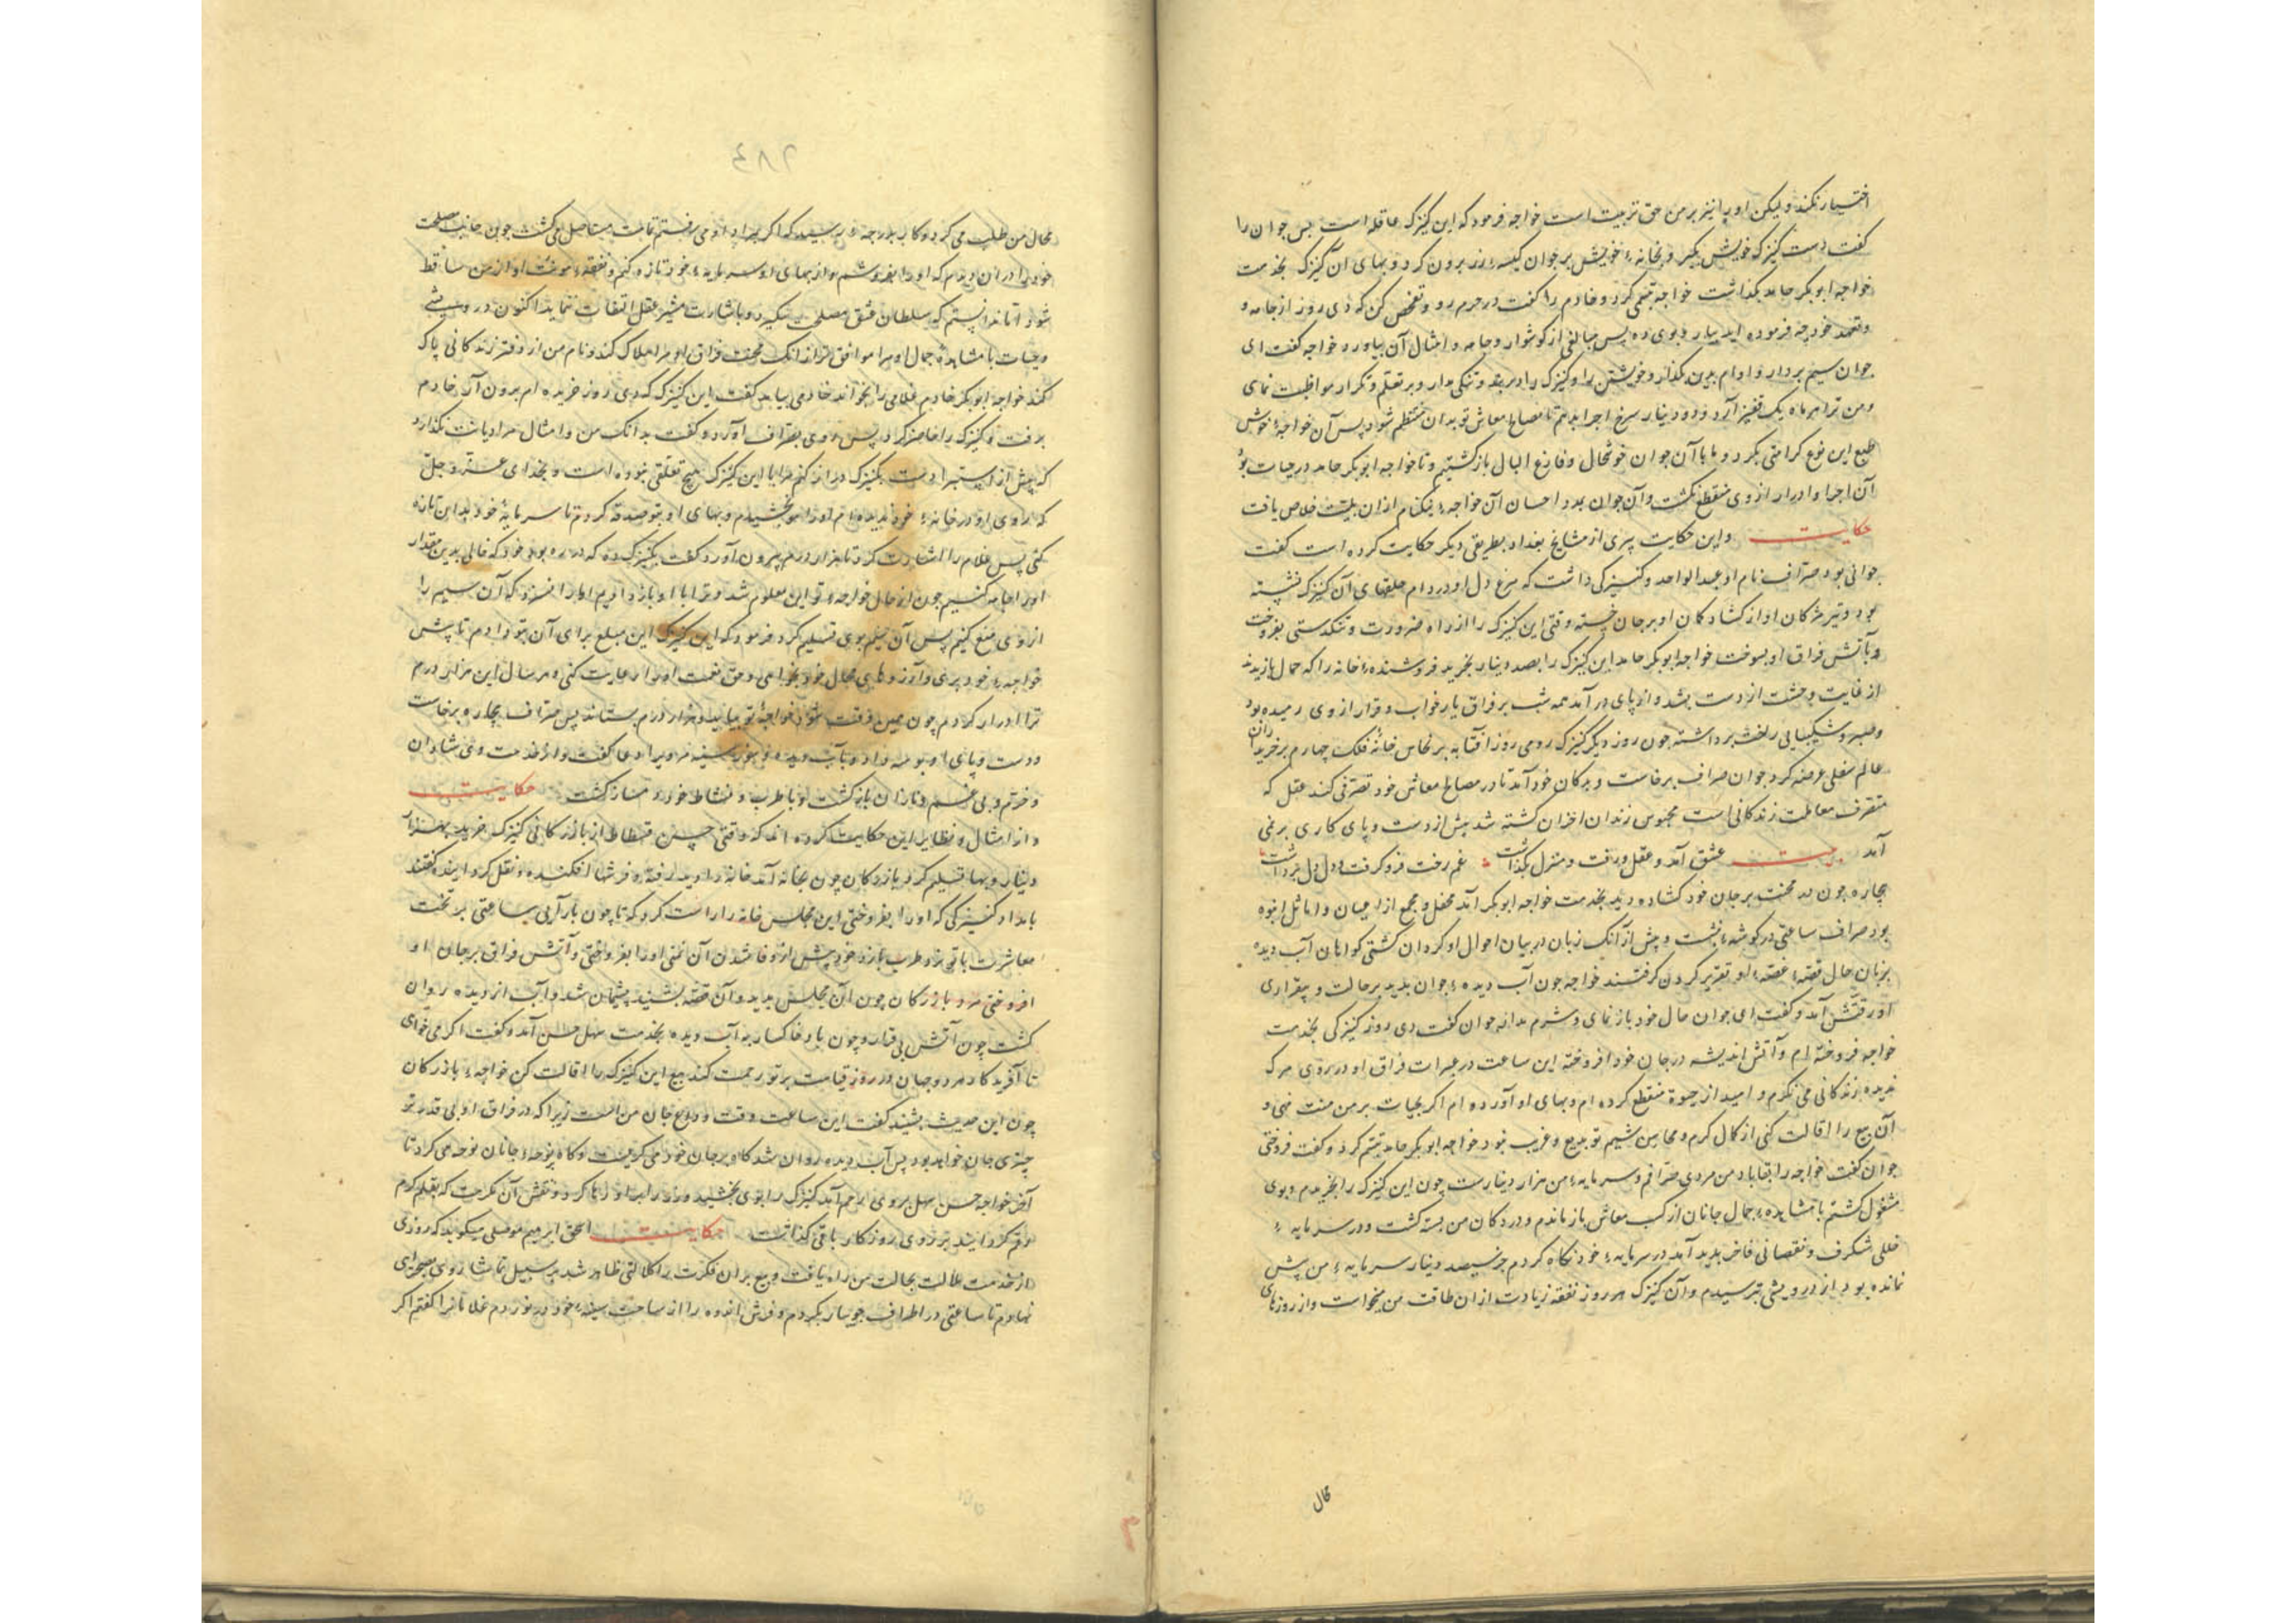 اختیار نکند ولیکن او را نیز بر من حق تربیت است خواجه فرمود که این کنیزک عاقله است پس جوان را
کفت دست کنیزک خویش بگیر و بخانهٔ خویش بر جوان کیسهٔ زر برون کرد و بهای آن کنیزک بخدمت
خواجه ابوبکر حامد بگذاشت خواجه تبسمی کرد و خادم را کفت در حرم رو و تفحص کن که دی روز از جامه و
و تعهد خود چه فرموده اید بیار و بوی ده پس مبالغی از کوشوار و جامه و امثال آن بیاورد خواجه کفت ای
جوان سیم بردار و وام بدین بگذار و خویشتن را و کنیزک را در بند و تنگی مدار و بر تعلم و تکرار مواظبت نمای
و من ترا هر ماه یک قفیز آرد و دو دینار سرخ اجرا بدهم تا مصالح معاش تو بدان منتظم شود پس آن خواجهٔ خوش
طبع این نوع کرامتی بکرد و ما با آن جوان خوشحال و فارغ البال باز کشتیم و تا خواجه ابوبکر حامد در حیات بود
آن اجرا و ادرار از وی منقطع نکشت و آن جوان بمدد احسان آن خواجهٔ نیکنام ازان بلیت خلاص یافت
حکایت و این حکایت پیری از مشایخ بغداد بطریقی دیکر حکایت کرده است کفت
جوانی بود صراف نام او عبدالواحد و کنیزکی داشت که مرغ دل او در دام حلقهای آن کنیزک نشسته
بود و تیر مژکان او از کشاد کمان ابرو بر جان خسته وقتی این کنیزک را از راه ضرورت و تنکدستی بفروخت
و بآتش فراق او بسوخت خواجه ابوبکر حامد این کنیزک را بصد دینار بخرید فروشنده خانه را که جمال باز ندید
از غایت وحشت از دست بشد و از پای در آمد همه شب بر فراق یار خواب و قرار از وی رمیده بود
و صبر و شکیبایی رخت برداشته چون روز دیکر کنیزک رومی روز آفتابه بر نحاس خانهٔ فلک چهارم بر خریداران
عالم سفلی عرضه کرد جوان صراف برخاست و بدکان خود آمد تا در مصالح معاش خود تصرفی کند عقل که
متصرف معاملت زندکانی است محبوس زندان احزان کشته شد بیش از دست و پای کاری بر نمی
آمد بیت عشق آمد و عقل و رفت و منزل بگذاشت غم رخت فرو کرفت و دل دل برداشت
بیچاره چون در محنت بر جان خود کشاده دید بخدمت خواجه ابوبکر آمد محفل و مجمع از اعیان و اماثل انبوه
بود صراف ساعتی در کوشه بنشست و پیش از آنک زبان در بیان احوال او کروان کشتی کواهان آب دیده
بزبان حال قصهٔ غصهٔ او تقریر کردن کرفتند خواجه چون آب دیدهٔ جوان بدید بر حالت و بیقراری
او رقتش آمد و کفت ای جوان حال خود باز نمای و شرم مدار جوان کفت دی روز کنیزکی بخدمت
خواجه فروخته ام و آتش اندیشه در جان خود افروخته این ساعت در عبرات فراق او در روی مرک
ندیده زندکانی می نکرم و امید از حیوة منقطع کرده ام و بهای او آورده ام اکر بحیات بر من منت نهی و
آن بیع را اقالت کنی از کمال کرم و محاسن شیم تو بدیع و غریب نبود خواجه ابوبکر حامد تبسم کرد و کفت فروختی
جوان کفت خواجه را بقا باد من مردی صرافم و سرمایهٔ من هزار دینارست چون این کنیزک را بخریدم و بوی
مشغول کشتم بمشاهدهٔ جمال جانان از کسب معاش باز ماندم و در دکان من بسته کشت و در سرمایه
خللی شکرف و نقصانی فاخر بدید آمد در سرمایهٔ خود نکاه کردم جز سیصد دینار سرمایهٔ من پیش
نمانده بود از درویشی بترسیدم و آن کنیزک هر روز نفقه زیادت ازان طاقت من میخواست و از روزهای
محال
۲۸٤
محال من طلب می کرد و کار بدرجهٔ رسید که اکر بمراد او می رفتم تمامت مستاصل می کشت چون جانب مصلحت
خود را دران دیدم که او را بفروشم و از بهای او سرمایهٔ خود تازه کنم و نفقه و مونت او از من ساقط
شود اما ندانستم که سلطان عشق مصلحت نبیند و باشارت مشیر عقل التفات ننماید اکنون درویشی
و حیات با مشاهدهٔ جمال او مرا موافق تر از انک محنت فراق او مرا هلاک کند و نام من از دفتر زندکانی پاک
کند خواجه ابوبکر خادم غلامی را بخواند خادمی بیامد کفت این کنیزک که دی روز خریده ام برون آر خادم
برفت و کنیزک را حاضر کرد پس روی بصراف آورد و کفت بدانک من و امثال مرا دیانت نکذارد
که پیش از استبرا دست بکنیزک دراز کنم مرا با این کنیزک هیچ تعلقی نبوده است و بخدای عز و جل
که روی او در خانهٔ خود ندیده ام او را بتو بخشیدم و بهای او بتو صدقه کردم تا سرمایهٔ خود بدان تازه
کنی پس غلام را اشارت کرد تا هزار درم بیرون آورد کفت بکنیزک ده که در ره بود خود که خالی بدین مقدار
او را جامه کنیم چون از حال خواجهٔ تو این معلوم شد و ترا با او باز دادیم روا نبود که آن سیم را
از وی منع کنیم پس آن سیم بوی تسلیم کرد و فرمود که این کنیزک این مبلغ برای آن بتو دادم تا پیش
خواجهٔ خود بری و آرزوهای محال خود نخواهی و حق نعمت او را رعایت کنی و هر سال این هزار درم
ترا ادرار کردم چون همین وقت شود خواجهٔ تو بیاید و هزار درم بستاند پس صراف بیچاره برخاست
و دست و پای او بوسه داد و بآب دیده و سوز سینه مر ویرا دعا کفت و از خدمت وی شادان
و خرم و بی غم و نازان باز کشت و با طرب و نشاط خود دمساز کشت حکایت
و از امثال و نظایر این حکایت کرده اند که وقتی حسن از بازرکانی کنیزک خرید بهزار
دینار و بها تسلیم کرد بازرکان چون بخانه آمد خانه را دید رفته و فرشها افکنده و نقل کرد ایند کفتند
بامداد کنیزکی که او را بفروختی این مجلس خانه را راست کرد که تا چون باز آیی ساعتی بر تخت
معاشرت با تو نرد طرب بازد خود پیش از وفا شدن آن تمنی او را بفروختی و آتش فراق بر جان او
افروختی مرد بازرکان چون آن مجلس بدید و آن قصه بشنید پشیمان شد و آب از دیده روان
کشت چون آتش بی قرار و چون باد خاکسار به آب دیده بخدمت سهل حسن آمد و کفت اکر می خواهی
تا آفریدکار هر دو جهان در روز قیامت بر تو رحمت کند بیع این کنیزک را اقالت کن خواجهٔ بازرکان
چون این حدیث بشنید کفت این ساعت وقت وداع جان من است زیرا که در فراق او بی قدر تو
چیزی جان خواهد بود پس آب دیده روان شد کاه بر جان خود می کریست و کاه بوجه جانان نوحه می کرد تا
آخر خواجه حسن سهل بر وی رحم آمد کنیزک را بوی بخشید و زر را بدو رها کرد و نقش آن مکرمت که بقلم کرم
رقم کردانید بر روی روزکار باقی کذاشت حکایت اسحق ابرهیم موصلی میکوید که روزی
از خدمت ملالت بحالت من راه یافت و طبع بران فکرت را کلالتی ظاهر شد بر سبیل تماشا روی بصحرای
نهادم تا ساعتی در اطراف جویبار بکردم و فرش اندوه را از ساحت سینهٔ خود در نوردم غلامانرا کفتم اکر